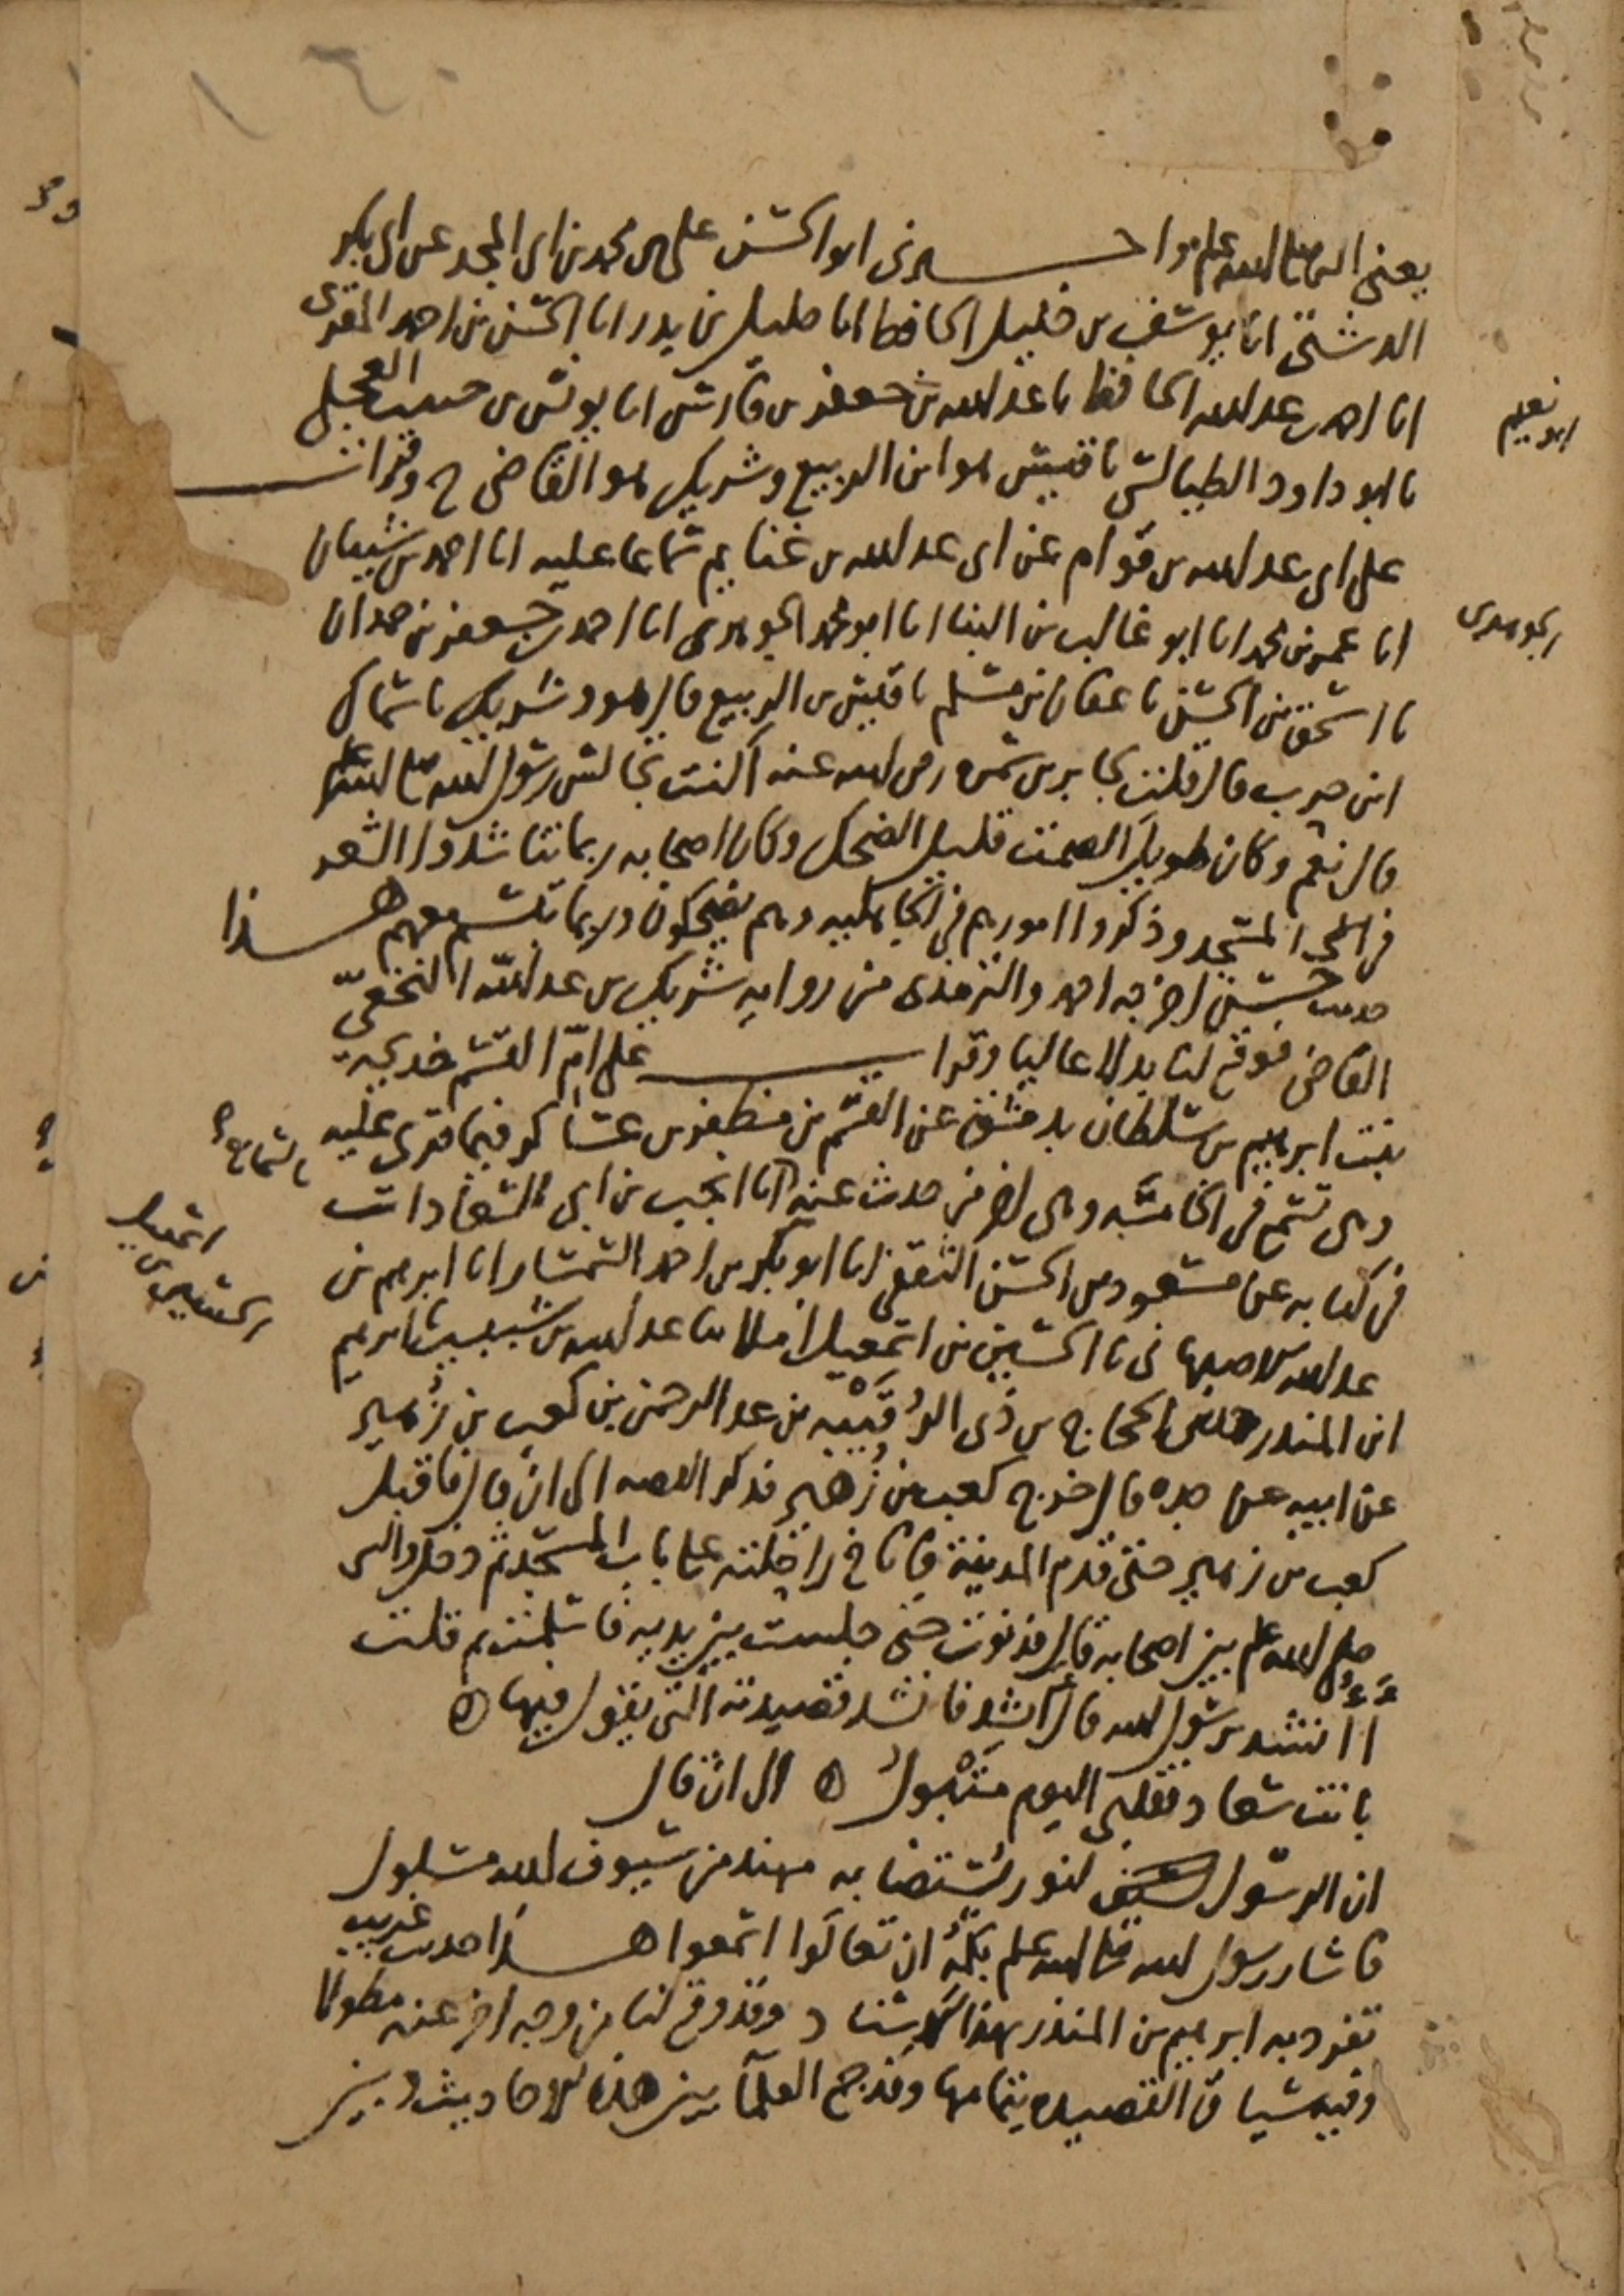 يعني النبي صلى الله عليه وسلم واخبرني ابو الحسن علي بن محمد بن ابي المجد عن ابي بكر
الدشتي انا يوسف بن خليل الحافظ انا خليل بن بدر انا الحسن بن احمد المقرئ
انا احمد بن عبد الله الحافظ نا عبد الله بن جعفر بن فارس انا يونس بن حبيب العجلي
نا ابو داود الطيالسي نا قيس هو ابن الربيع وشريك هو القاضي ح وقرات
على ابي عبد الله بن قوام عن ابي عبد الله بن غنايم سماعا عليه انا احمد بن شيبان
انا عمر بن محمد انا ابو غالب بن البنا انا ابو محمد الجوهري انا احمد بن جعفر بن حمدان
نا اسحق بن الحسن نا عفان بن مسلم نا قيس بن الربيع قال هو وشريك نا سماك
ابن حرب قال قلت لجابر بن سمره رضي الله عنه اكنت تجالس رسول الله صلى الله عليه وسلم
قال نعم وكان طويل الصمت قليل الضحك وكان اصحابه ربما تناشدوا الشعر
في المسجد وذكروا امورهم في الجاهليه وهم يضحكون وربما تبسم معهم هذا
حديث حسن اخرجه احمد والترمذي من روايه شريك بن عبد الله النخعي
القاضي فوقع لنا بدلا عاليا وقرات على ام القسم خديجه
بنت ابرهيم بن سلطان بدمشق عن القسم بن مظفر بن عساكر فيما قرئ عليه
وهي تسمع في الخامسه وهي اخر من حدث عنه بالسماع انا انجب بن ابي السعادات
في كتابه عن مسعود بن الحسن الثقفي انا ابو بكر بن احمد السمسار انا ابرهيم بن
عبد الله الاصبهاني نا الحسين بن اسمعيل املا ثنا عبد الله بن شبيب ثنا ابرهيم
ابن المنذر حدثني الحجاج بن ذي الرُّقَيْبه بن عبد الرحمن بن كعب بن زُهير
عن ابيه عن جده قال خرج كعب بن زُهير فذكر القصه الى ان قال فاقبل
كعب بن زهير حتى قدم المدينة فاناخ راحلته على باب المسجد ثم دخل والنبي
صلى الله عليه وسلم بين اصحابه قال فدنوت حتى جلست بين يديه فاسلمت ثم قلت
أأُنشد يرسول الله قال أنشد فانشد قصيدته التي يقول فيها
بانت سعاد فقلبي اليوم متْبول الى ان قال
ان الرسول لنور يُستضا به مهند من سيوف الله مسلول
فاشار رسول الله صلى الله عليه وسلم بكمه ان تعالوا اسمعوا هذا حديث غريب
تفرد به ابرهيم بن المنذر بهذا الاسناد وقد وقع لنا من وجه اخر عنه مطولا
وفيه سياق القصيده بتمامها وقد جمع العلمآ بين هذه الاحاديث وبين
ابو نعيم
الجوهري
بالسماع
اسمعيل
الحسين بن